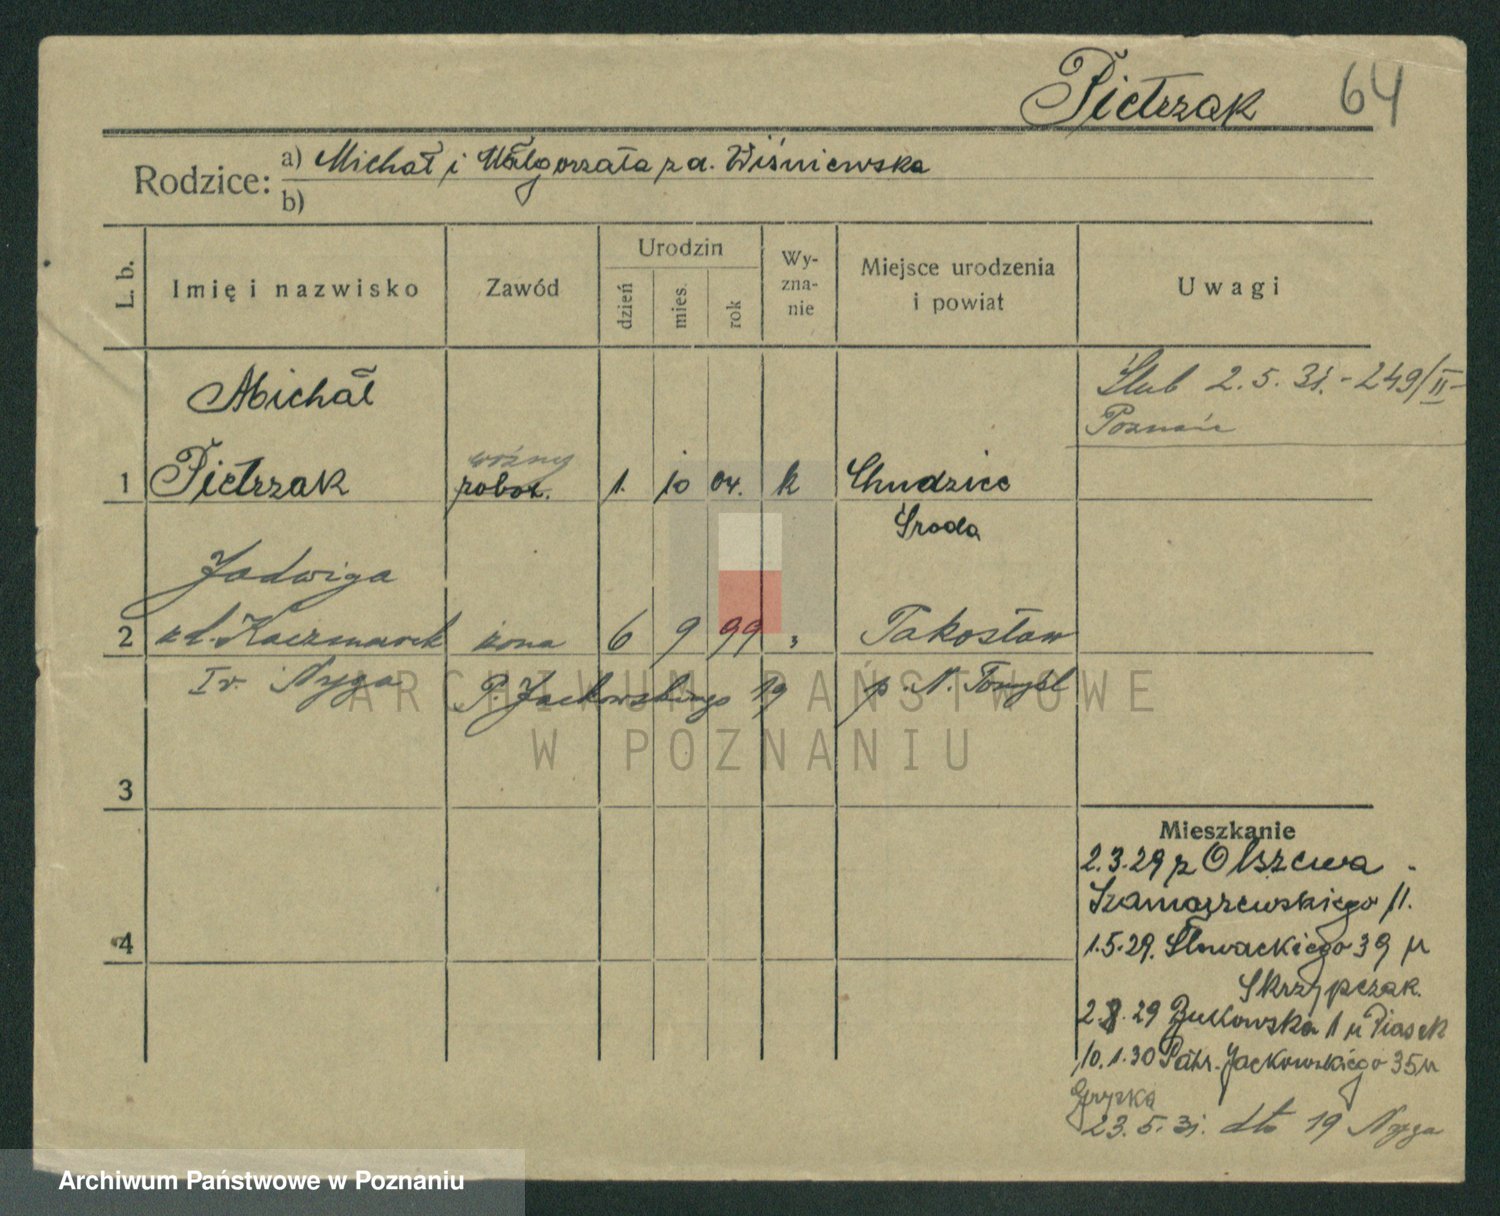 Pietrzak 64
Rodzice: a) Michał i Małgorzata z d. Wiśniewska
b)
L. b. Imię i nazwisko Zawód Urodzin dzień mies. rok Wy-zna-nie Miejsce urodzenia i powiat Uwagi
Ślub 2.5.31.-249/II-
Poznań
Michał
woźny
1 Pietrzak robot. 1. 10 04. k Chudzice
Środa
Jadwiga
2 zd. Kaczmarek żona 6 9 99 " Pakosław
Iv. Nyga P. Jackowskiego 19 p. N. Tomyśl
3
4
Mieszkanie
2.3.29 z Olszewa
Szamarzewskiego 11.
1.5.29. Słowackiego 39 u
Skrzypczak.
2.8.29 Bukowska 1 u Piasek
10.1.30 Patr. Jackowskiego 35 u
23.5.31. dto 19 Nyga
ARCHIWUM PAŃSTWOWE
W POZNANIU
Archiwum Państwowe w Poznaniu